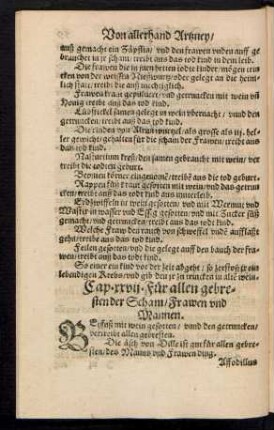 Von allerhand Artzney/
auß gemacht ein Zäpflin/ vnd den frawen vnden auff ge
brauchet in jr scham/ treibt auß das tod kind in dem leib.
Die frawen die in jnen hetten todte kinder/ mögen
cken von der weissen Nießwurtz/ oder gelegt an die heim
lich statt/ treibt die auß
Frawen kraut gepuluert/ vnd getruncken mit wein vñ
Honig treibt auß das tod kind.
gelegt in wein vbernacht/ vnnd den
getruncken/ treibt auß das tod kind.
Die rinden von als grosse als iij. hel-
ler gewicht/ gehalten für die scham der Frawen/ treibt auß
das tod kind.
Nasturtium kreß/ den samen gebraucht mit wein/ ver
treibt die todten geburt.
Bronien körner eingenom̃/ treibt auß die tod geburt.
Rappen kraut gesotten mit wein/ vnd das getrun
cken/ treibt auß das tod kind auß muterleib.
Erdöpffel in wein gesotten/ vnd mit Wermut vnd
Wasser in wasser vnd Essig gesotten/ vnd mit Zucker süß
gemacht/ vnd getruncken/ treibt auß das tod kind.
Welche Fraw den rauch von schweffel vndẽ aufflaßt
geht/ treibt auß das tod kind.
Feilen gesotten/ vnd die gelegt auff den bauch der fra-
wen/ treibt auß das tod kind.
So einer ein kind vor der zeit abgeht/ so zerstoß jr ein
lebendigen Krebs/ vnd gib den jr zu trincken in
Cap. xxvij. Für allen gebre-
sten der Scham/ Frawen vnd
Mannen.
BEyfuß mit wein gesotten/ vnnd den getruncken/
vertreibt allen gebresten.
Die äsch von Dille ist gut für allen gebre-
sten/ des Manns vnd Frawen ding.
Affodillus